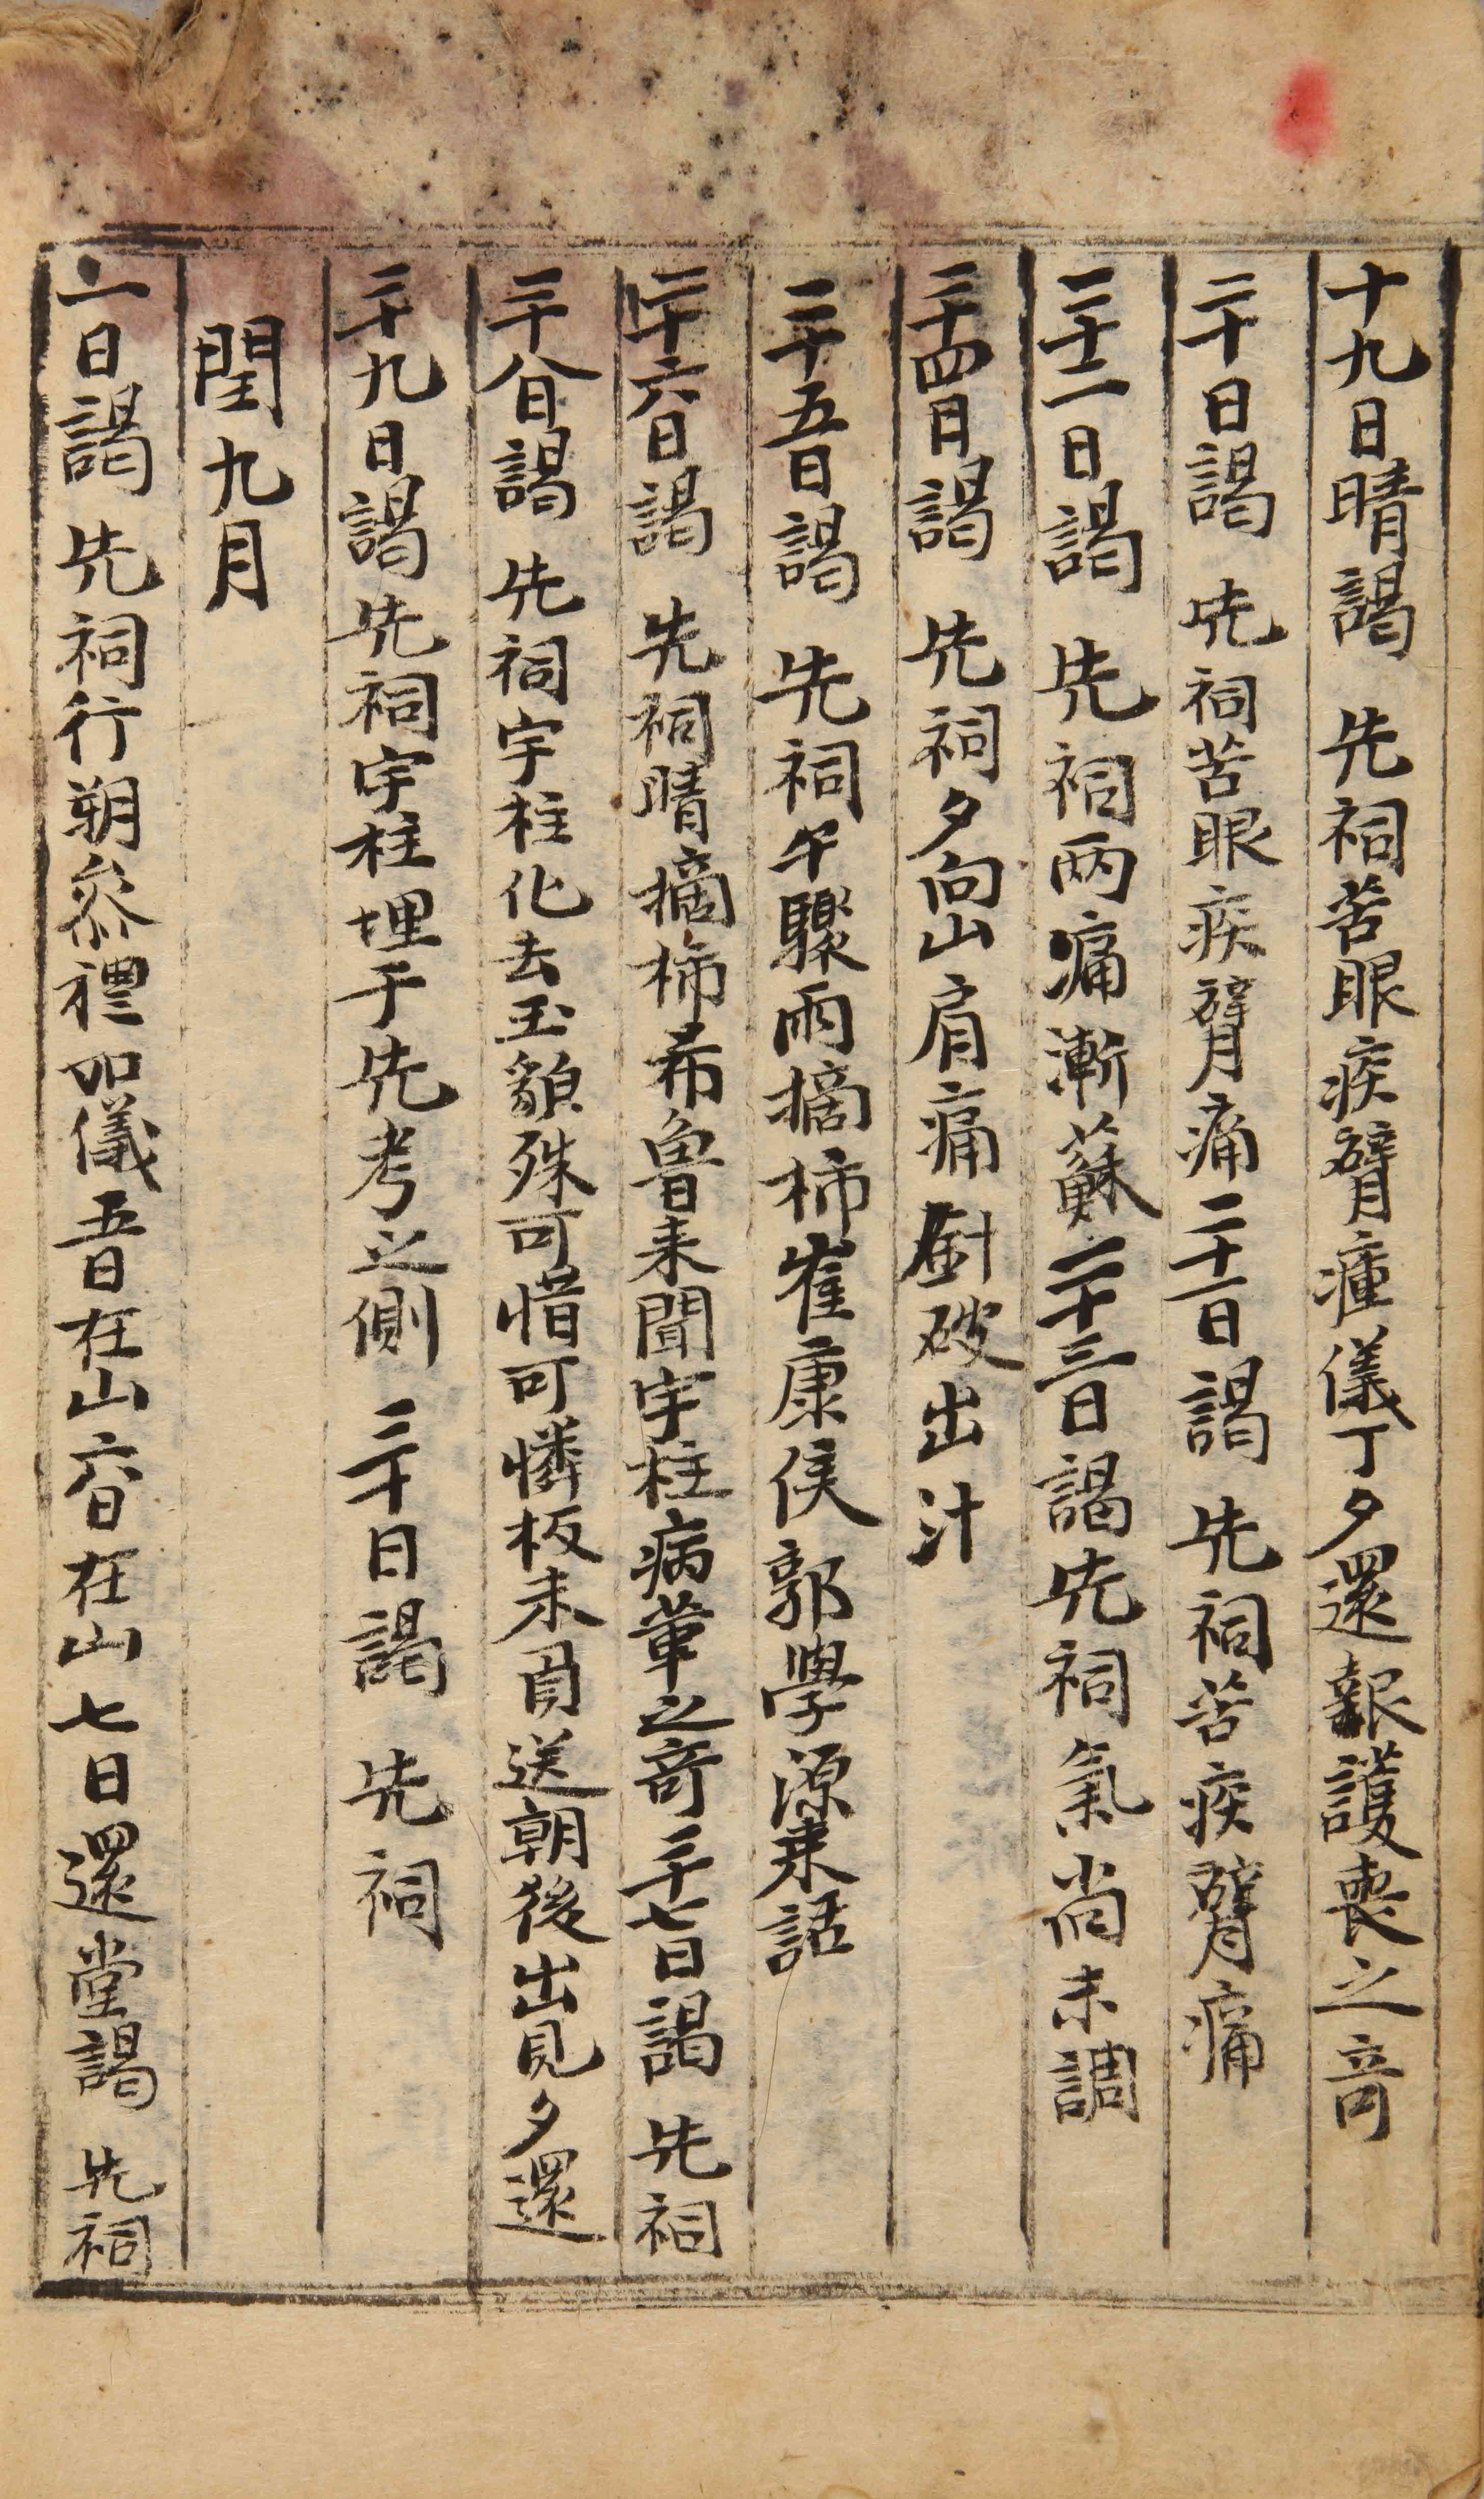 十九日晴謁 先祠苦眼疾臂瘇儀丁夕還報護喪之奇
二十日謁 先祠苦眼疾臂痛二十一日謁 先祠苦疾臂痛
二十二日謁 先祠两痛漸蘇二十三日謁先祠氣尚未調
二十四日謁 先祠夕向山肩痛針破出汁
二十五日謁 先祠午驟雨摘柿崔康侯郭學源来話
二十六日謁 先祠晴摘柿希魯来聞宇柱病革之奇二十七日謁 先祠
二十八日謁 先祠宇柱化去玉貌殊可惜可憐板未貟送朝後出見夕還
二十九日謁先祠宇柱埋于先考之側 三十日謁 先祠
閏九月
一日謁 先祠行朔叅禮如儀五日在山六日在山七日還堂謁 先祠